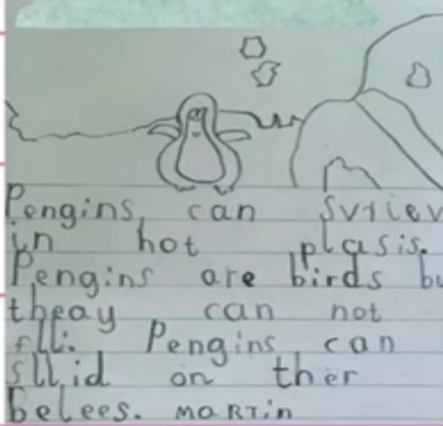 Pengins can Sviev
in hot plasis.
Pengins are birds bu
theay can not
flli. Pengins can
sllid on ther
belees. MARTin